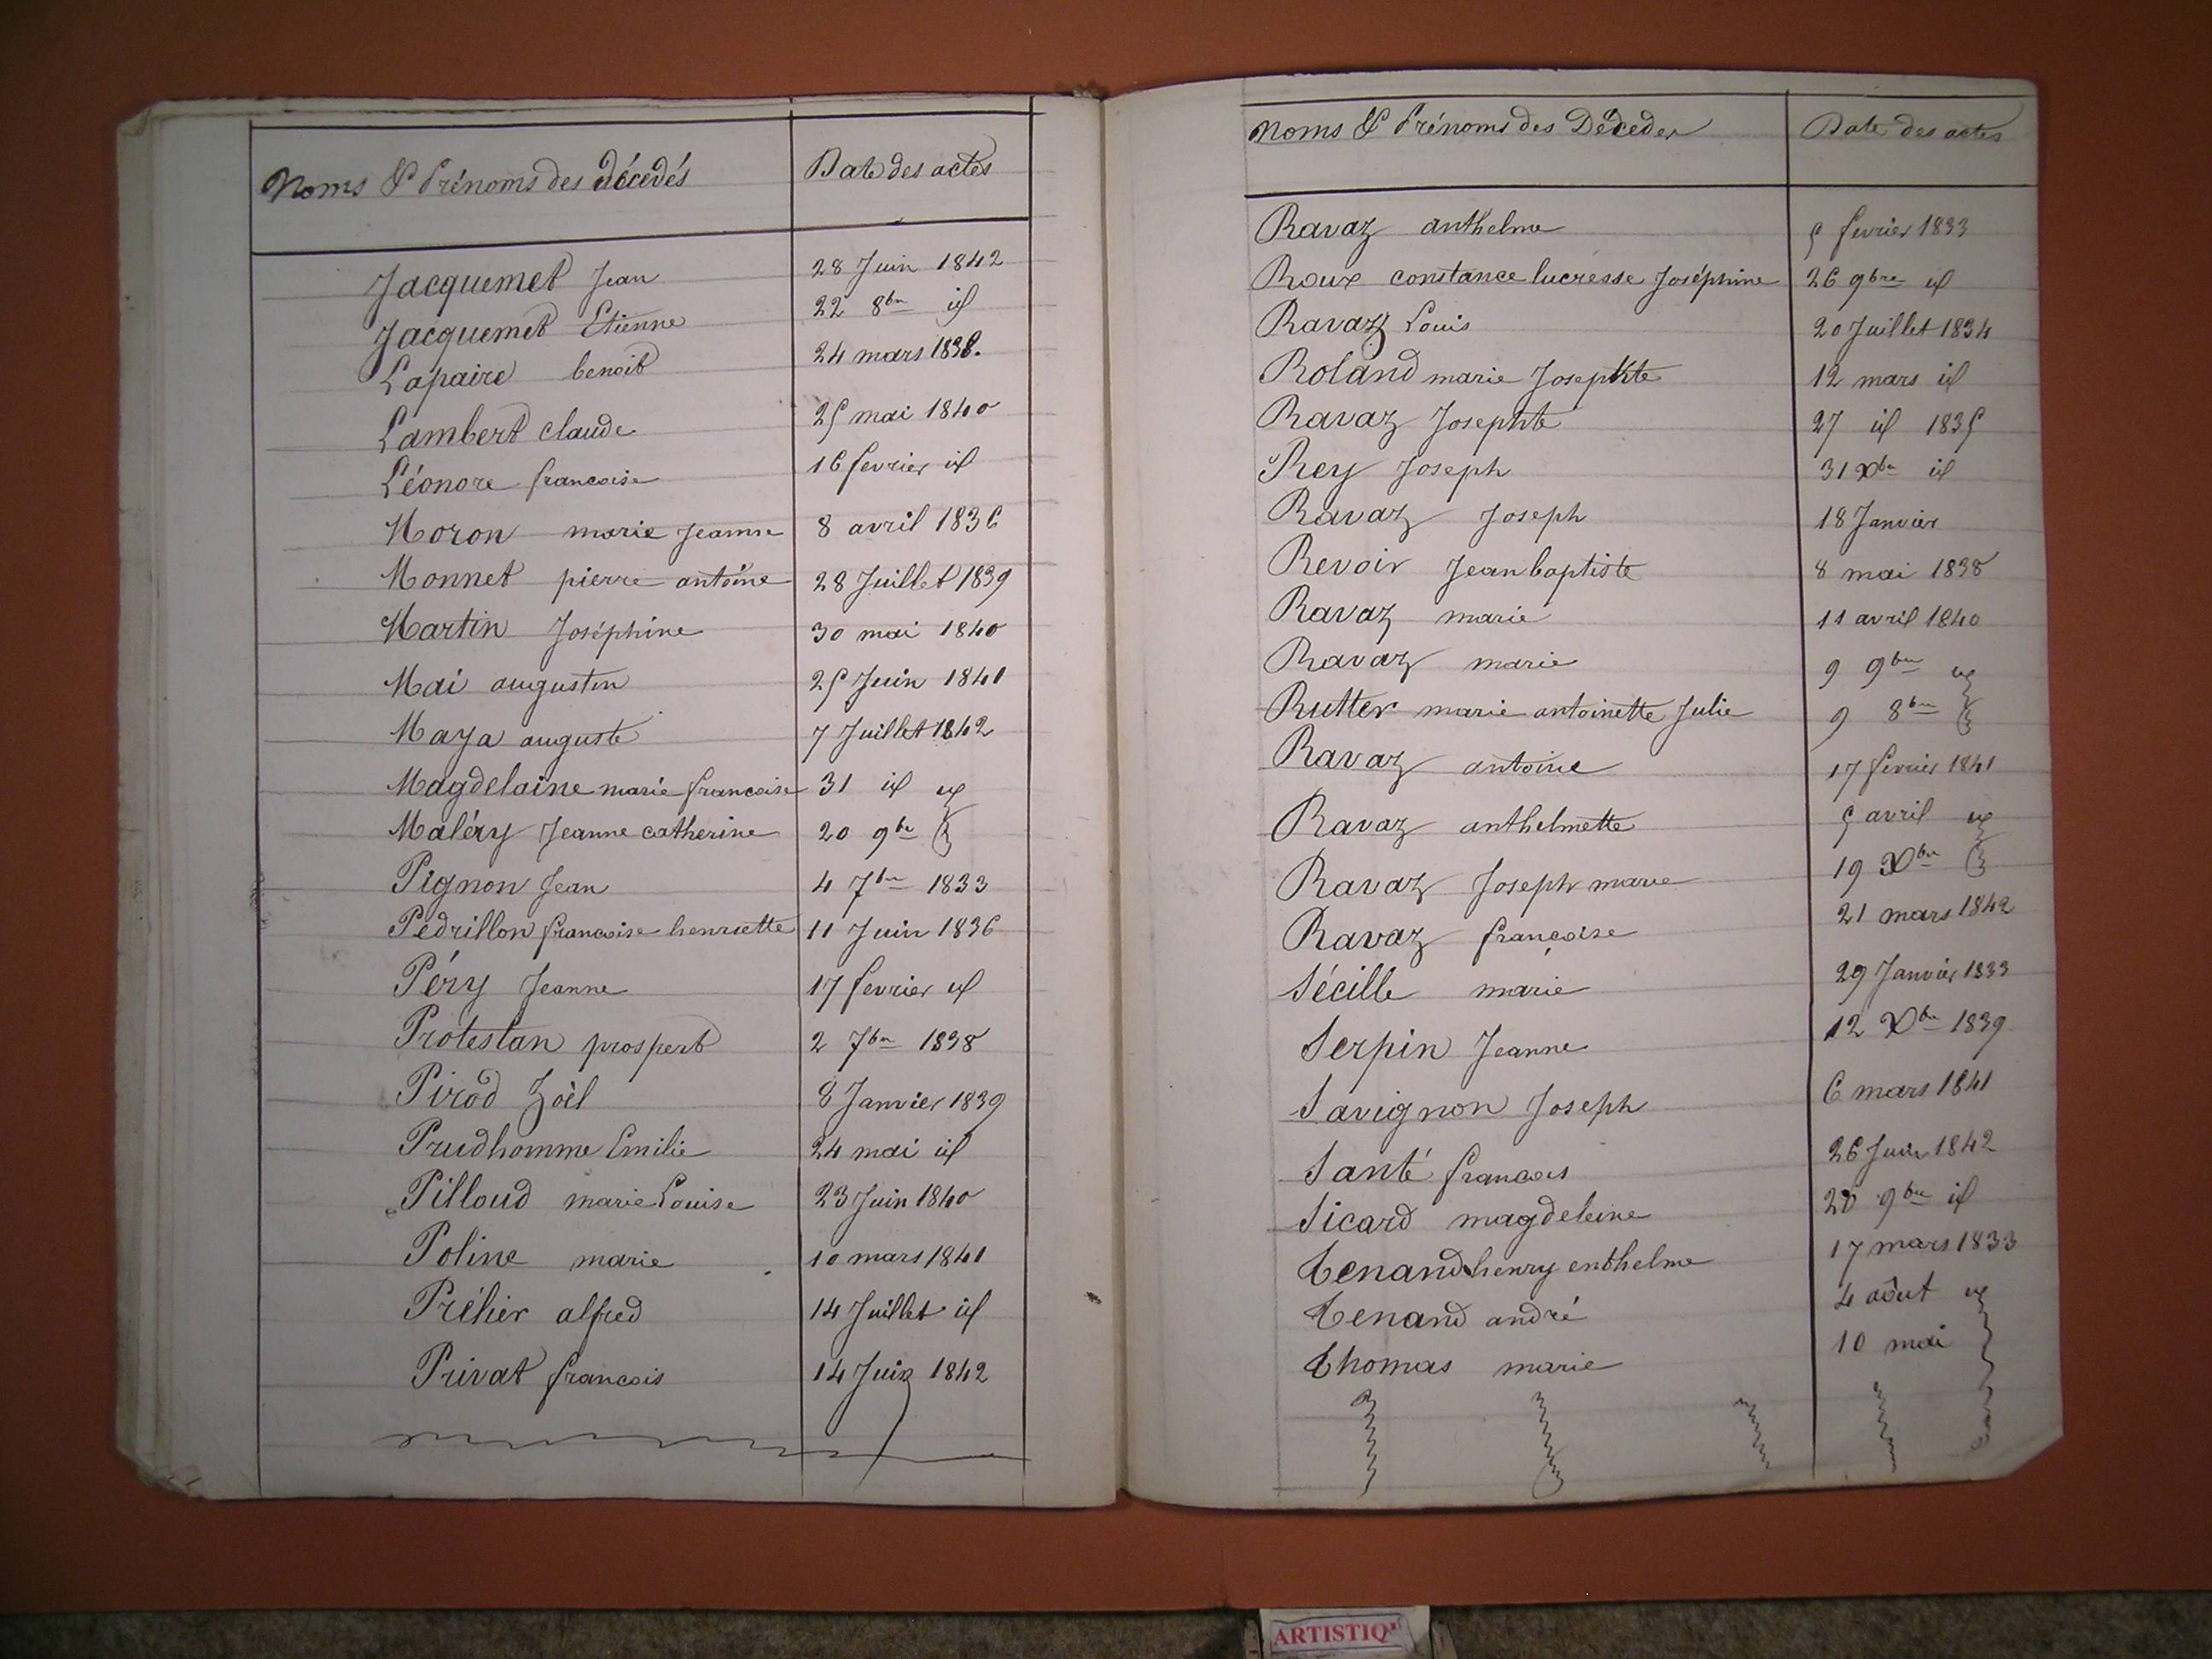 Noms & Prénoms des décédés Date des actes
Jacquemet Jean 28 Juin 1842
Jacquemet Etienne 22 8bre id
Lapaire benoit 24 mars 1838.
Lambert claude 25 mai 1840
Léonore francoise 16 fevrier id
Moron marie Jeanne 8 avril 1836
Monnet pierre antoine 28 Juillet 1839
Martin Joséphine 30 mai 1840
Mai augustin 25 Juin 1841
Maya auguste 7 Juillet 1842
Magdelaine marie francoise 31 id id
Maléry Jeanne catherine 20 9bre
Pignon Jean 4 7bre 1833
Pedrillon francoise henriette 11 Juin 1836
Péry Jeanne 17 fevrier id
Protestan prospert 2 7bre 1838
Pirod Zoèl 8 Janvier 1839
Prudhomme Emilie 24 mai id
Pilloud marie Louise 23 Juin 1840
Poline marie 10 mars 1841
Prélier alfred 14 Juillet id
Privat francois 14 Juin 1842
Noms & Prénoms des Décédés Date des actes
Ravaz anthelme 5 fevrier 1833
Roux constance lucresse Joséphine 26 9bre id
Ravaz Louis 20 Juillet 1834
Roland marie Josephte 12 mars id
Ravaz Josephte 27 id 1835
Rey Joseph 31 Xbre id
Ravaz Joseph 18 Janvier
Revoir Jean baptiste 8 mai 1838
Ravaz marie 11 avril 1840
Ravaz marie 9 9bre id
Rutter marie antoinette Julie 9 8bre
Ravaz antoine 17 fevrier 1841
Ravaz anthelmette 5 avril id
Ravaz Joseph marie 19 Xbre
Ravaz françoise 21 mars 1842
Sécille marie 29 Janvier 1833
Serpin Jeanne 12 Xbre 1839
Savignon Joseph 6 mars 1841
Santé francois 26 Juin 1842
Sicard magdeleine 28 9bre id
Tenand henry enthelme 17 mars 1833
Tenand andré 4 août id
Thomas marie 10 mai
ARTISTIQ